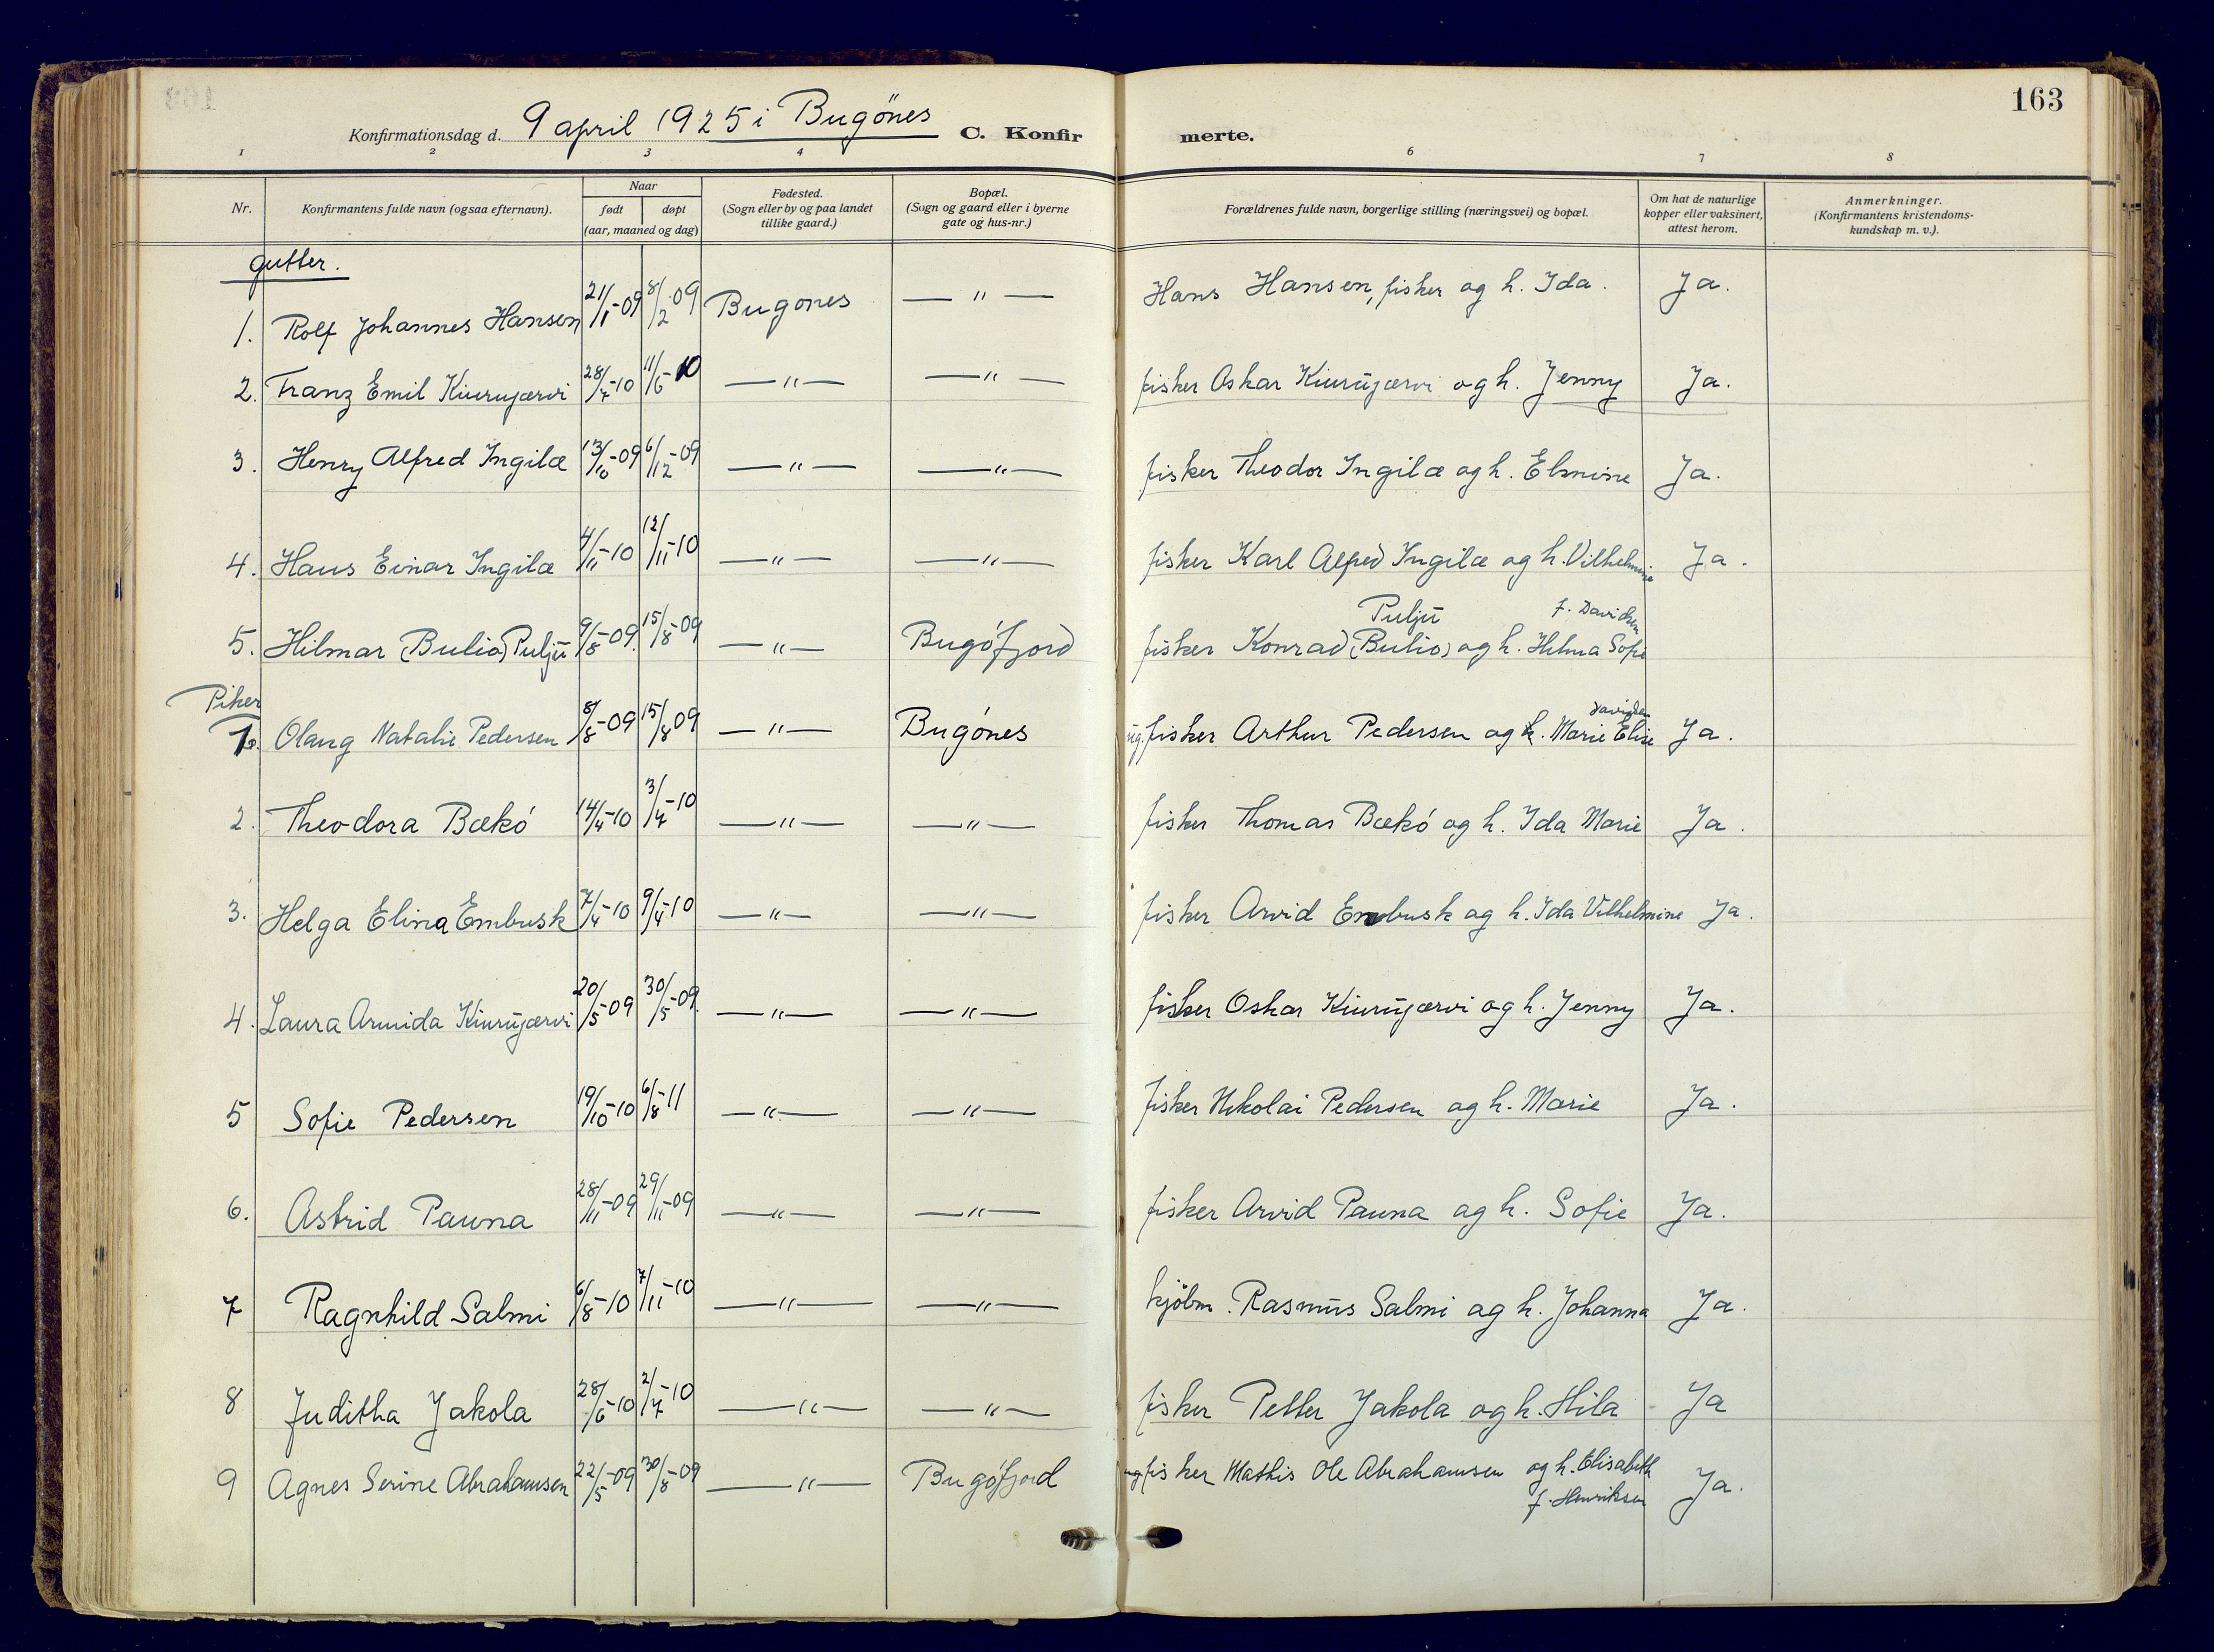 163
Konfirmationsdag d. 9 april 1925 i Bugönes C. Konfir merte.
1 2 3 4 6 7 8
Nr. Konfirmantens fulde navn (ogsaa efternavn). Naar født døpt (aar, maaned og dag) Fødested. (Sogn eller by og paa landet tillike gaard.) Bopæl. (Sogn og gaard eller i byerne gate og hus-nr.) Forældrenes fulde navn, borgerlige stilling (næringsvei) og bopæl. Om hat de naturlige kopper eller vaksinert, attest herom. Anmerkninger. (Konfirmantens kristendoms-kundskap m. v.).
gutter.
1. Rolf Johannes Hansen 21/1-09 8/2 09 Bugones — " — Hans Hansen, fisker og h. Ida. Ja.
2. Franz Emil Kiurujærvi 28/4-10 11/6-10 — " — — " — fisker Oskar Kiurujærvi og h. Jenny Ja.
3. Henry Alfred Ingilæ 13/10-09 6/12-09 — " — — " — fisker Theodor Ingilæ og h. Elmine Ja.
4. Hans Einar Ingilæ 4/11-10 12/11-10 — " — — " — fisker Karl Alfred Ingilæ og h. Vilhelmine Ja.
Pulju f. Davidsen
5. Hilmar (Bulio) Pulju 9/8-09. 15/8-09 — " — Bugöfjord fisker Konrad (Bulio) og h. Helma Sofie
Piker
Davidsen
1. Olaug Natalie Pedersen 8/8-09 15/8 09 — " — Bugönes ug. fisker Arthur Pedersen og h. Marie Elise Ja.
2. Theodora Bækö 14/4-10 3/4-10 — " — — " — fisker Thomas Bækö og h. Ida Marie Ja.
3. Helga Elina Embusk 7/4-10 9/4-10 — " — — " — fisker Arvid Embusk og h. Ida Vilhelmine Ja.
4. Laura Armida Kiurujærvi 20/5-09 30/5-09. — " — — " — fisker Oskar Kiurujærvi og h. Jenny Ja.
5 Sofie Pedersen 19/10-10 6/8-11 — " — — " — fisker Nikolai Pedersen og h. Marie Ja.
6. Astrid Pauna 28/11-09 29/11-09 — " — — " — fisker Arvid Pauna og h. Sofie Ja.
7 Ragnhild Salmi 6/8-10 7/11-10 — " — — " — kjöbm. Rasmus Salmi og h. Johanna Ja.
8 Juditha Jakola 28/6-10 2/7-10 — " — — " — fisker Petter Jakola og h. Hila Ja
9 Agnes Serine Abrahamsen 22/5-09 30/8-09 — " — Bugöfjord ug fisker Mathis Ole Abrahamsen og h. Elisabeth Ja.
f. Henriksen